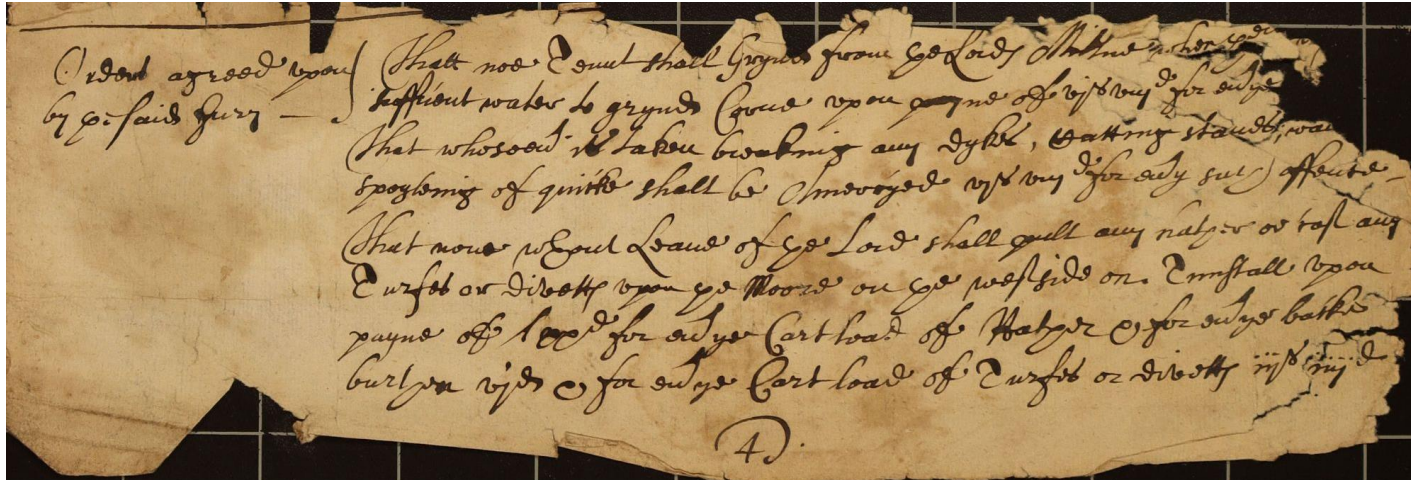 Orders agreed upon
by ye said Jury —
Thatt noe Tennt shall Grynd from ye Lords Milne when yer
suffitient water to grynd Corne upon payne of vjs viijd for evrye
That whosoevr is taken breaking any dykes, Cutting stands, wa
spoyleing of quicke shall be Amercyed vjs viijd for evry such offence –
That none wthout Leave of ye Lord shall pull any hather or cast any
Turfes or divetts upon ye Moore on ye westside on Tunstall upon
payne of xxd for evrye Cart load of Hather & for evrye backe
burthen vjd & for evrye Cart load of Turfes or divetts iijs iiijd
4